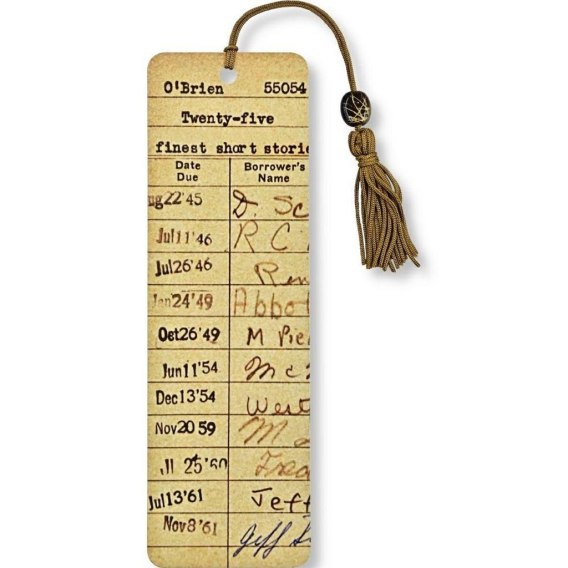 O'Brien 55054
Twenty-five
finest short storie
Date Due Borrower's Name
ug22'45 D. Sc
Jul11'46 R C
Jul26'46 Ren
Jan24'49 Abbot
Oct26'49 M Pie
Jun11'54 Mc
Dec13'54 West
Nov2059 M
Jl 25'60 Fred
Jul13'61 Jeff
Nov8'61 Jeff